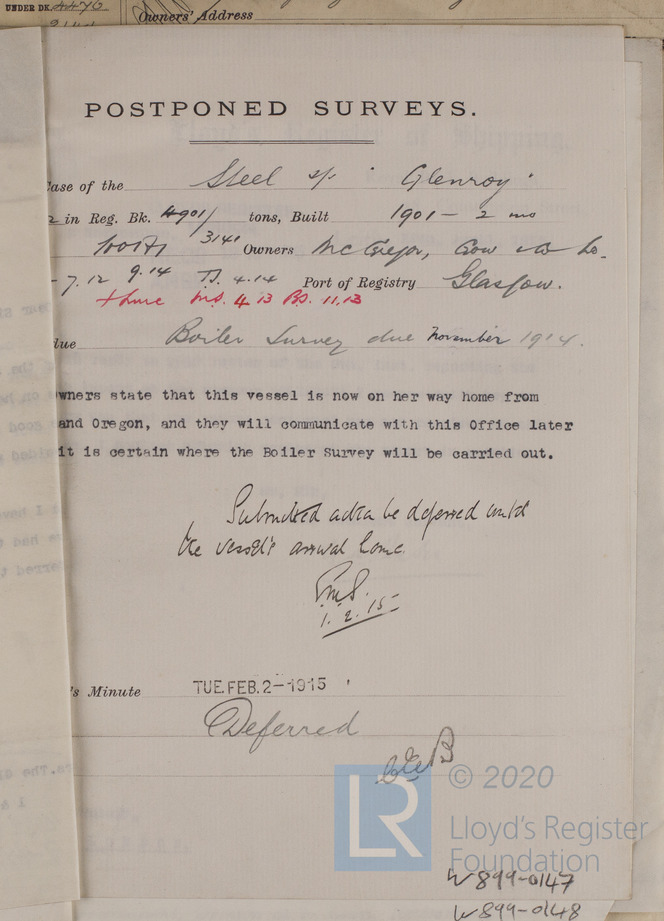 UNDER DK.
Owners' Address
POSTPONED SURVEYS.
Case of the Steel s/s "Glenroy"
in Reg. Bk. 4901/ tons, Built 1901 - 2 mo
100A1 3141 Owners McGregor, Gow & Co.
- 7.12 9.14 TS. 4.14 Port of Registry Glasgow.
MS. 4.13 BS. 11.13
due Boiler Survey due November 1914.
wners state that this vessel is now on her way home from
and Oregon, and they will communicate with this Office later
it is certain where the Boiler Survey will be carried out.
Submitted action be deferred until
the vessel's arrival home.
1.2.15
's Minute TUE. FEB. 2-1915
Deferred
LR © 2020
Lloyd's Register
Foundation
W899-0147
W899-0148